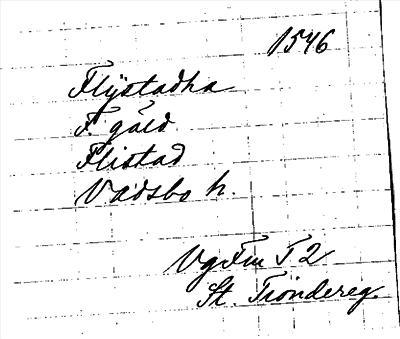 1546
Flÿstadha
F. gäld
Flistad
Vadsbo h.
Vg Fm T 2
St. Tiondereg.